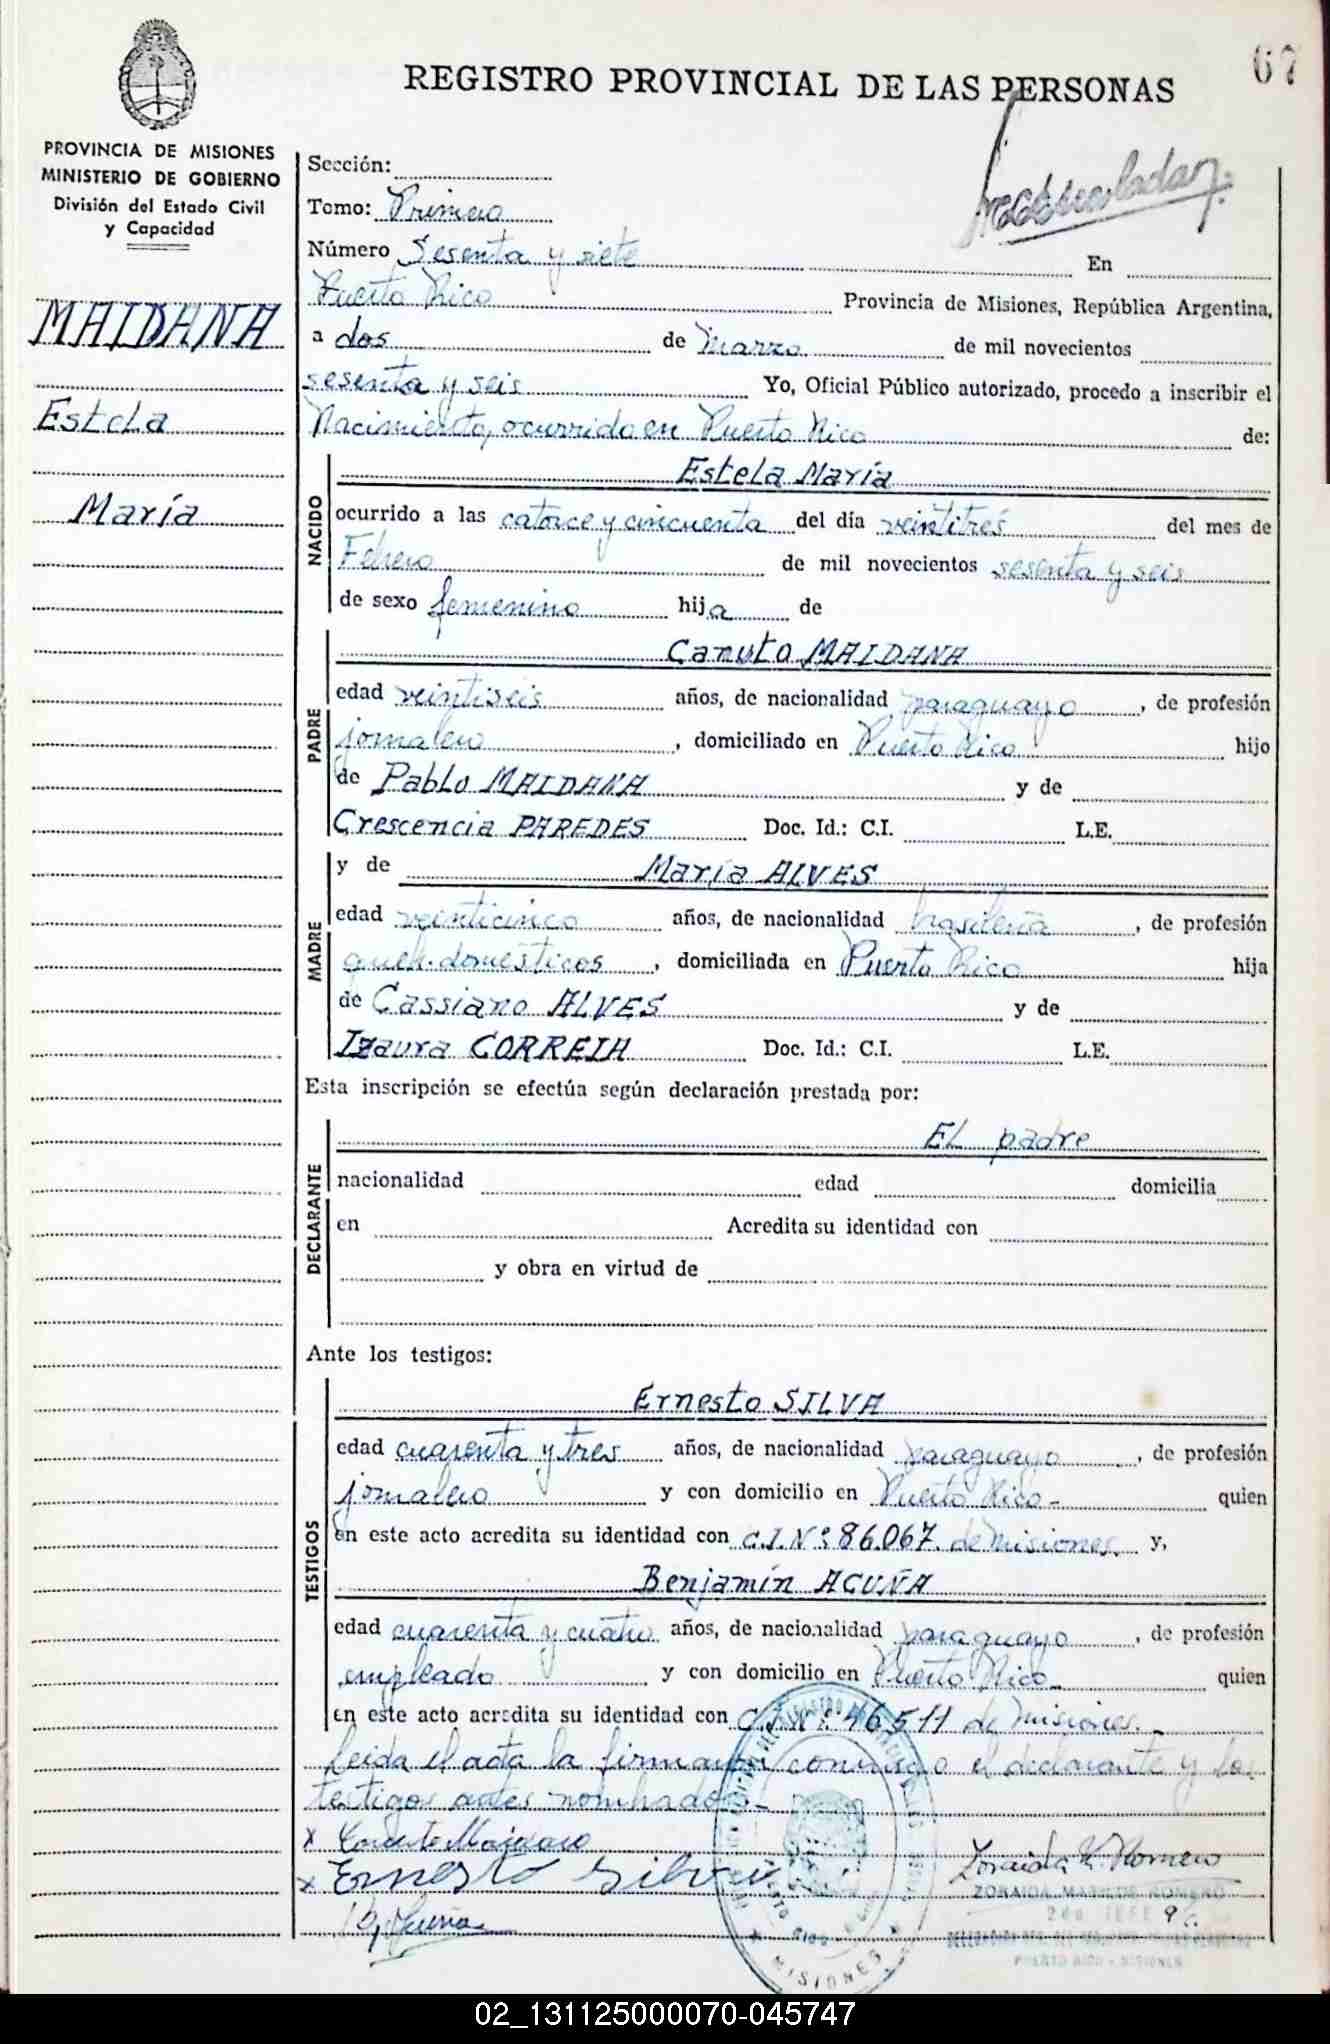 67
REGISTRO PROVINCIAL DE LAS PERSONAS
PROVINCIA DE MISIONES
MINISTERIO DE GOBIERNO
División del Estado Civil
y Capacidad
MAIDANA
Estela
María
Sección:
Tomo: Primero
Número Sesenta y siete En
Puerto Rico Provincia de Misiones, República Argentina,
a dos de Marzo de mil novecientos
sesenta y seis Yo, Oficial Público autorizado, procedo a inscribir el
Nacimiento, ocurrido en Puerto Rico de:
NACIDO
Estela María
ocurrido a las catorce y cincuenta del día veintitres del mes de
Febrero de mil novecientos sesenta y seis
de sexo femenino hija de
PADRE
Canuto MAIDANA
edad veintiseis años, de nacionalidad paraguayo, de profesión
jornalero, domiciliado en Puerto Rico hijo
de Pablo MAIDANA y de
Crescencia PAREDES Doc. Id.: C.I. L.E.
MADRE
y de María ALVES
edad veinticinco años, de nacionalidad brasileña, de profesión
queh. domésticos, domiciliada en Puerto Rico hija
de Cassiano ALVES y de
Izaura CORREIA Doc. Id.: C.I. L.E.
Esta inscripción se efectúa según declaración prestada por:
DECLARANTE
EL padre
nacionalidad edad domicilia
en Acredita su identidad con
y obra en virtud de
Ante los testigos:
TESTIGOS
Ernesto SILVA
edad cuarenta y tres años, de nacionalidad paraguayo, de profesión
jornalero y con domicilio en Puerto Rico- quien
en este acto acredita su identidad con C.I. Nº: 86.067. de Misiones. y,
Benjamín ACUÑA
edad cuarenta y cuatro años, de nacionalidad paraguayo, de profesión
empleado y con domicilio en Puerto Rico- quien
en este acto acredita su identidad con C.I. Nº: 46511 de Misiones.-
Leida el acta la firman conmigo el declarante y los
testigos antes nombrados.-
x
x Ernesto Silva
Zoraida M. Romero
ZORAIDA MATILDE ROMERO
2do JEFE
PUERTO RICO - MISIONES
MISIONES
02_131125000070-045747